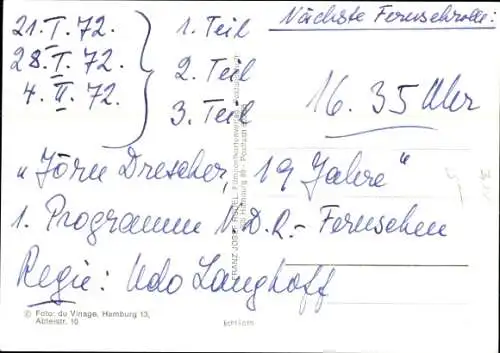 Nächste Fernsehrolle:
21. I. 72. } 1. Teil
28. I. 72. } 2. Teil
4. II. 72. } 3. Teil
16.35 Uhr
"Jörn Drescher, 19 Jahre"
1. Programm N.D.R.-Fernsehen
Regie: Udo Langhoff
© Foto: du Vinage, Hamburg 13,
Abteistr. 10